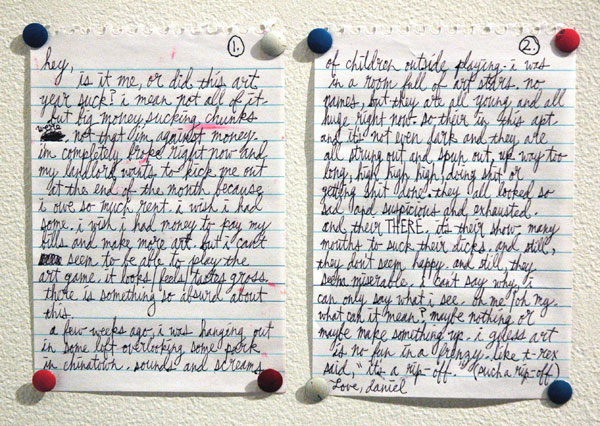 1.
hey,
is it me, or did this art
year suck? i mean not all of it.
but big money sucking chunks
not that im against money.
im completely broke right now and
my landlord wants to kick me out
at the end of the month because
i owe so much rent. i wish i had
some. i wish i had money to pay my
bills and make more art. but i cant
seem to be able to play the
art game. it looks/feels/tastes gross.
there is something so absurd about
this.
a few weeks ago, i was hanging out
in some loft overlooking some park
in chinatown. sounds and screams
2.
of children outside playing. i was
in a room full of art stars. no
names, but they are all young and all
huge right now. so their in this apt.
and its not even dark and they are
all strung out and spun out, up way too
long, high, high, high, doing shit or
getting shit done. they all looked so
sad and suspicious and exhausted.
and their THERE. it's their show. many
mouths to suck their dicks. and still,
they don't seem happy. and still, they
seem miserable. i cant say why, i
can only say what i see. oh me/oh my.
what can it mean? maybe nothing or
maybe make something up. i guess art
is no fun in a frenzy. like t-rex
said, "it's a rip-off." (such a rip-off)
Love, daniel